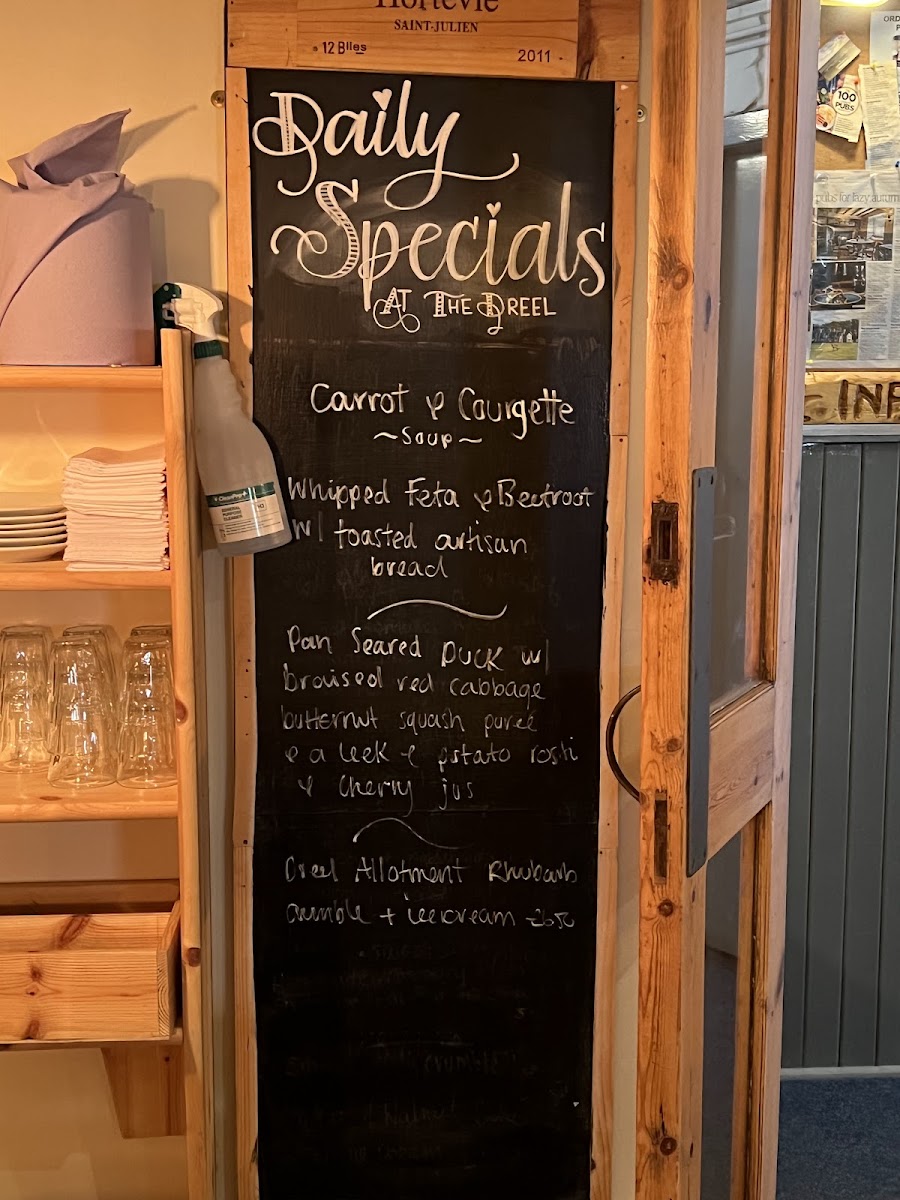 Hortevie
SAINT-JULIEN
12 Btles
2011
Daily
Specials
AT THE DREEL
Carrot & Courgette
~Soup~
Whipped Feta & Beetroot
w/ toasted artisan
bread
Pan Seared Duck w/
braised red cabbage
butternut squash pureé
& a leek & potato rosti
& Cherry jus
Dreel Allotment Rhubarb
crumble + icecream £6.50
CleanPro+
GENERAL
PURPOSE
CLEANER
H3
100
PUBS
pubs for lazy autumn